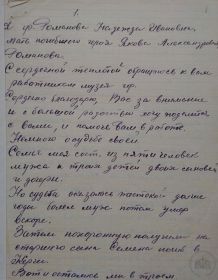 1
Я гр Романова Надежда Ивановна,
мать погибшего героя Якова Александровича
Романова.
С сердечной теплотой обращаюсь к вам
работникам музея гр.
Сердечно благодарю, Вас за внимание
и с большой радостью хочу поделится
с вами, и помочь вам в работе.
Немного о судьбе своей
Семья моя сост. из пяти человек
мужа и троих детей двоих сыновей
и дочери.
Но судьба оказалась жестокой
годы болел муж потом умер
вскоре.
Затем похоронную получили на
старшего сына Семена погиб в
Вот и остались мы в троем